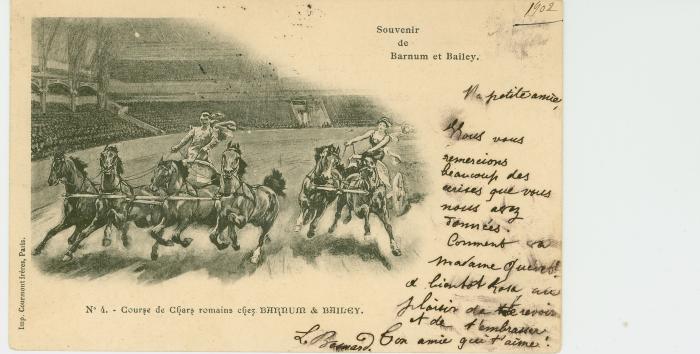 1902
Souvenir
de
Barnum et Bailey.
Ma petite amie,
Nous vous
remercions
beaucoup des
cerises que vous
nous avez
données.
Comment va
madame
à bientôt Rosa au
plaisir de te revoir
et de t'embrasser
Ton amie qui t'aime!
L.
Nº 4. - Course de Chars romains chez BARNUM & BAILEY.
Imp. Courmont frères, Paris.